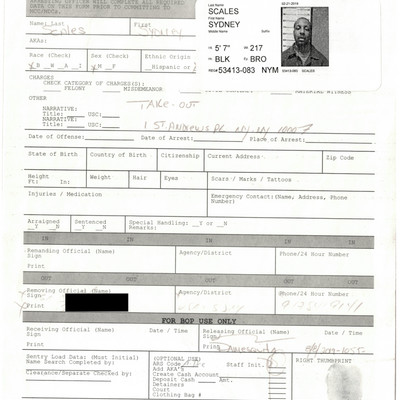 PROCESSING OFF. WILL COMPLETE ALL REQUIRED
DATA ON THIS FORM PRIOR TO COMMITTING TO
Name; Last First
Scales Sydney
AKAs:
Race (Check) Sex (Check) Ethnic Origin
B W A I M F Hispanic
Last Name
SCALES
First Name
SYDNEY
Middle Name Suffix
02-21-2019
5' 7" 217
BLK BRO
53413-083 NYM
53413-083 SCALES
CHARGES
CHECK CATEGORY OF CHARGE(S):
FELONY MISDEMEANOR MATERIAL WITNESS
OTHER TAKE-OUT
NARRATIVE:
Title: USC:
NARRATIVE:
Title: USC:
1 ST. ANDREWS PL NY, NY 10007
Date of Offense: Date of Arrest: Place of Arrest:
State of Birth Country of Birth Citizenship Current Address Zip Code
Height Weight Hair Eyes Scars / Marks / Tattoos
Ft: In:
Injuries / Medication Emergency Contact:(Name, Address, Phone Number)
Arraigned Sentenced Special Handling: _Y or _N
_Y or _N _Y or _N Remarks:
IN IN IN IN
Remanding Official (Name) Agency/District Phone/24 Hour Number
Sign
Print
OUT OUT OUT OUT
Removing Official (Name) Agency/District Phone/24 Hour Number
Sign
Print
FOR BOP USE ONLY
Receiving Official (Name) Date / Time Releasing Official (Name) Date / Time
Sign Sign
Print Print
Sentry Load Data: (Must Initial) (OPTIONAL USE) Staff Init. RIGHT THUMBPRINT
Name Search Completed by: Add Code
Add AKA's
Clearance/Separatee Checked by: Create Cash Account
Deposit Cash Amt.
Detainers
Court
Clothing Bag #